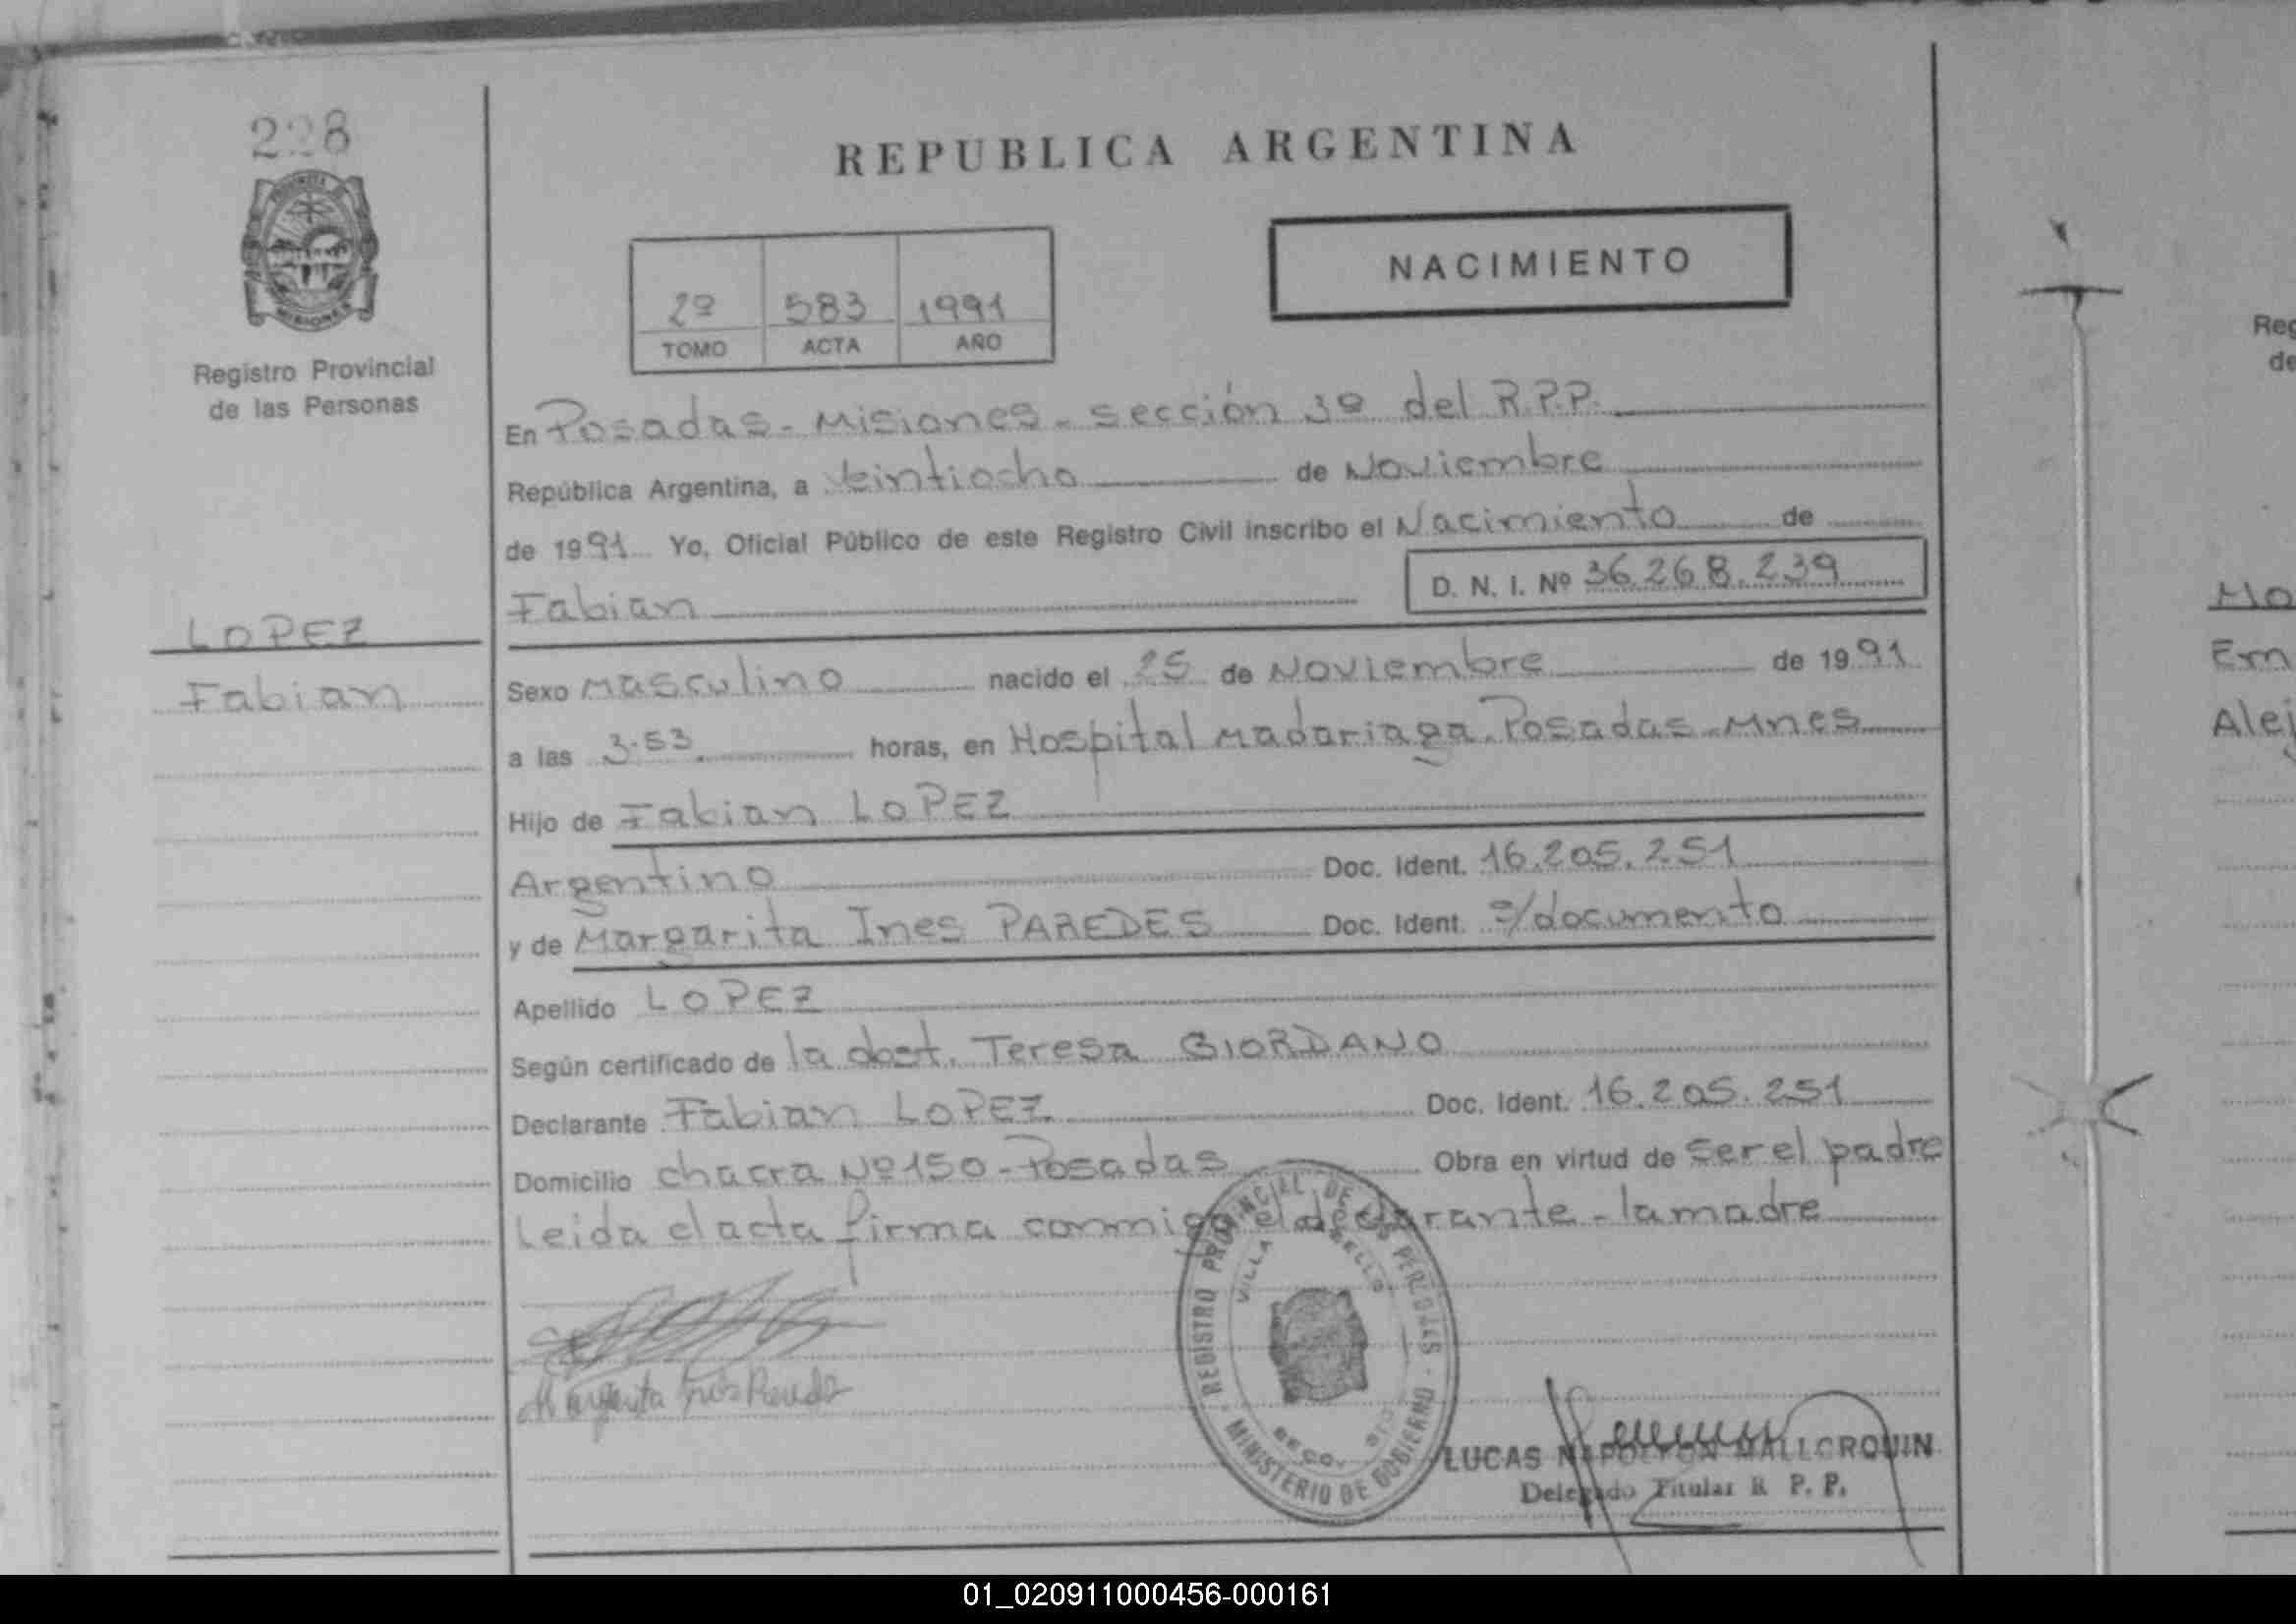 228
PROVINCIA DE
MISIONES
Registro Provincial
de las Personas
LOPEZ
Fabian
REPUBLICA ARGENTINA
NACIMIENTO
2º 583 1991
TOMO ACTA AÑO
En Posadas - Misiones - sección 3º del R.P.P.
República Argentina, a veintiocho de Noviembre
de 1991 Yo, Oficial Público de este Registro Civil inscribo el Nacimiento de
Fabian D. N. I. Nº 36.268.239
Sexo Masculino nacido el 25 de Noviembre de 1991
a las 3.53 horas, en Hospital Madariaga. Posadas - Mnes
Hijo de Fabian LOPEZ
Argentino Doc. Ident. 16.205.251
y de Margarita Ines PAREDES Doc. Ident. s/documento
Apellido LOPEZ
Según certificado de la obst. Teresa GIORDANO
Declarante Fabian LOPEZ Doc. Ident. 16.205.251
Domicilio chacra Nº 150 - Posadas Obra en virtud de ser el padre
Leida el acta firma conmigo el declarante - la madre
Margarita Ines Paredes
REGISTRO PROVINCIAL DE LAS PERSONAS - MINISTERIO DE GOBIERNO
VILLA
LUCAS NAPOLEON MALLORQUIN
Delegado Titular R P. P.
Reg
de
Mo
Ern
Alej
01_020911000456-000161